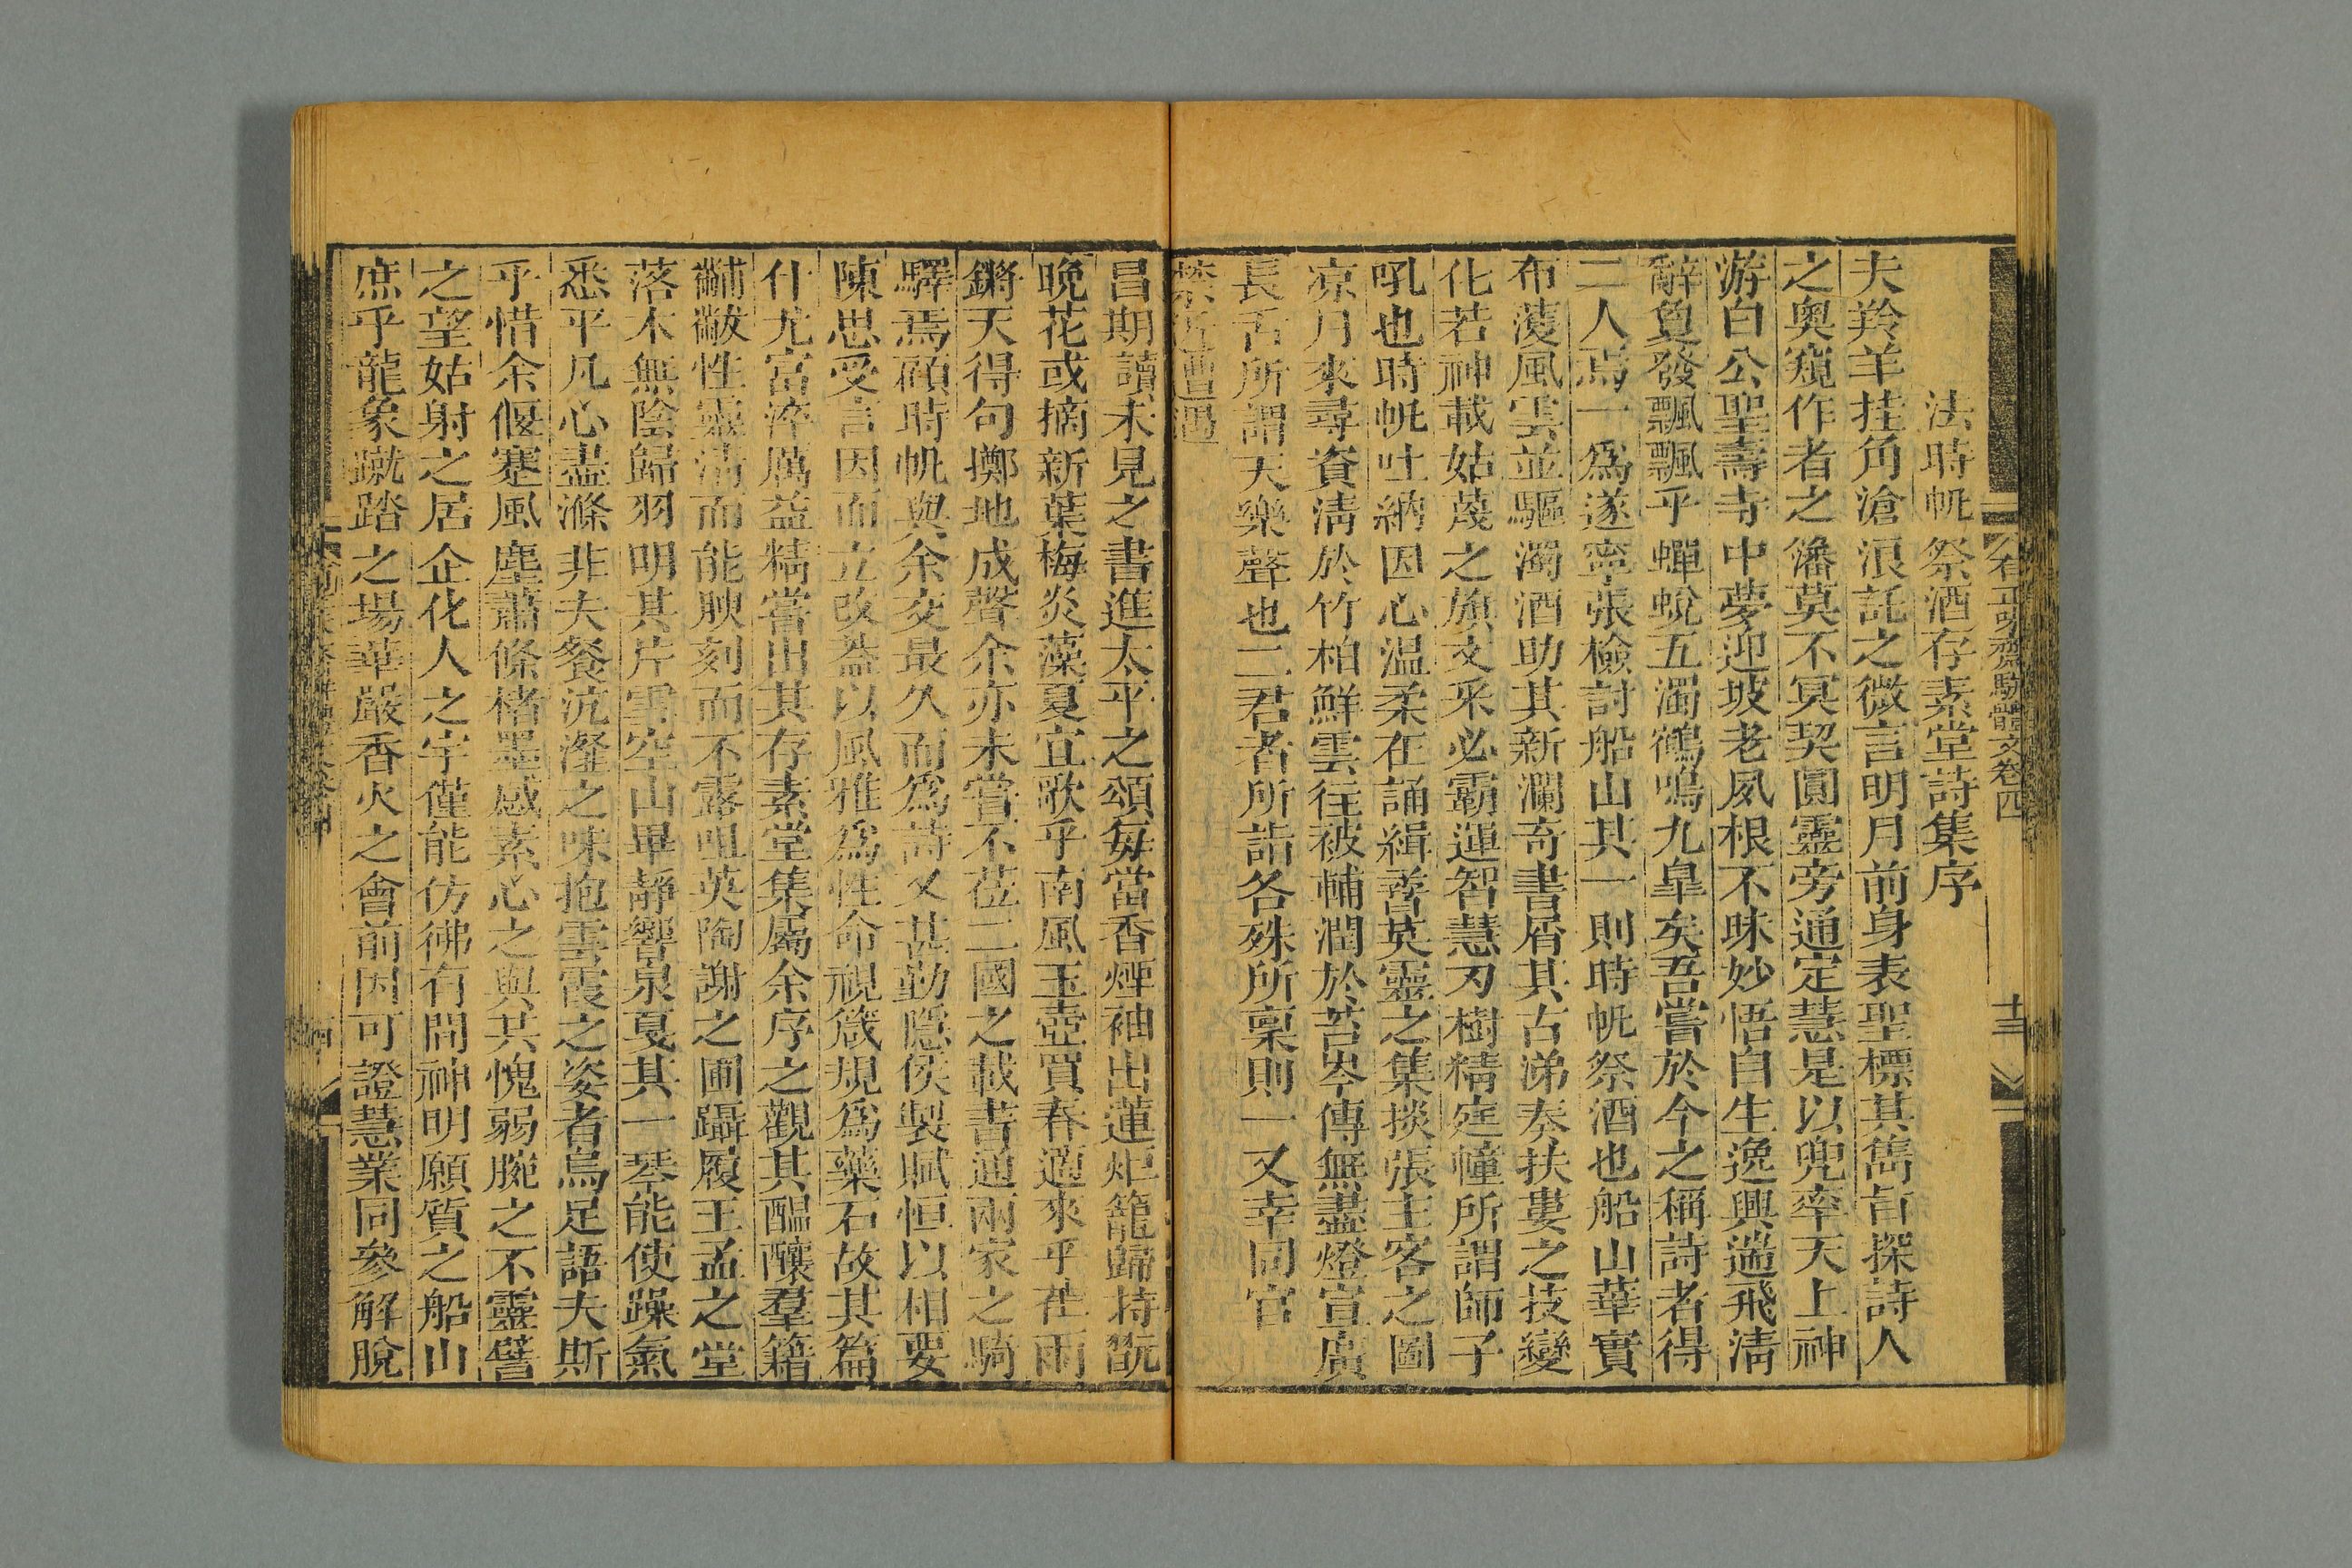 有正味齋駢體文卷四
十三
法時帆祭酒存素堂詩集序
夫羚羊挂角滄浪託之微言明月前身表聖標其雋旨探詩人
之奧窺作者之籓莫不冥契圓靈旁通定慧是以兜率天上神
游白公聖壽寺中夢迎坡老夙根不昧妙悟自生逸興遄飛清
辭奐發飄飄乎蟬蛻五濁鶴鳴九皐矣吾嘗於今之稱詩者得
二人焉一為遂寧張檢討船山其一則時帆祭酒也船山華實
布濩風雲並驅濁酒助其新瀾奇書屑其古涕奏扶婁之技變
化若神載姑蔑之旗文釆必霸運智慧刃樹精進幢所謂師子
吼也時帆吐納因心温柔在誦緝善英靈之集掞張主客之圖
涼月來尋資清於竹柏鮮雲往被輔潤於苔岑傳無盡燈宣廣
長舌所謂天樂聲也二君者所詣各殊所稟則一又幸同官
禁近遭遇
昌期讀未見之書進太平之頌每當香煙袖出蓮炬籠歸持翫
晚花或摘新葉梅炎藻夏宜歌乎南風玉壺買春適來乎社雨
鏘天得句擲地成聲余亦未嘗不莅二國之載書通兩家之騎
驛焉顧時帆與余交最久而為詩又甚勤隱侯製賦恒以相要
陳思受言因而立改葢以風雅為性命視箴規為藥石故其篇
什尤富淬厲益精嘗出其存素堂集屬余序之觀其醖釀羣籍
黼黻性靈清而能腴刻而不露咀英陶謝之圃躡履王孟之堂
落木無陰歸羽明其片雲空山畢靜響泉戛其一琴能使躁氣
悉平凡心盡滌非夫餐沆瀣之味抱雲霞之姿者烏足語夫斯
乎惜余偃蹇風塵蕭條楮墨感素心之與共愧弱腕之不靈譬
之望姑射之居企化人之宇僅能仿彿有間神明願質之船山
庶乎龍象蹴踏之場華嚴香火之會前因可證慧業同參解脫